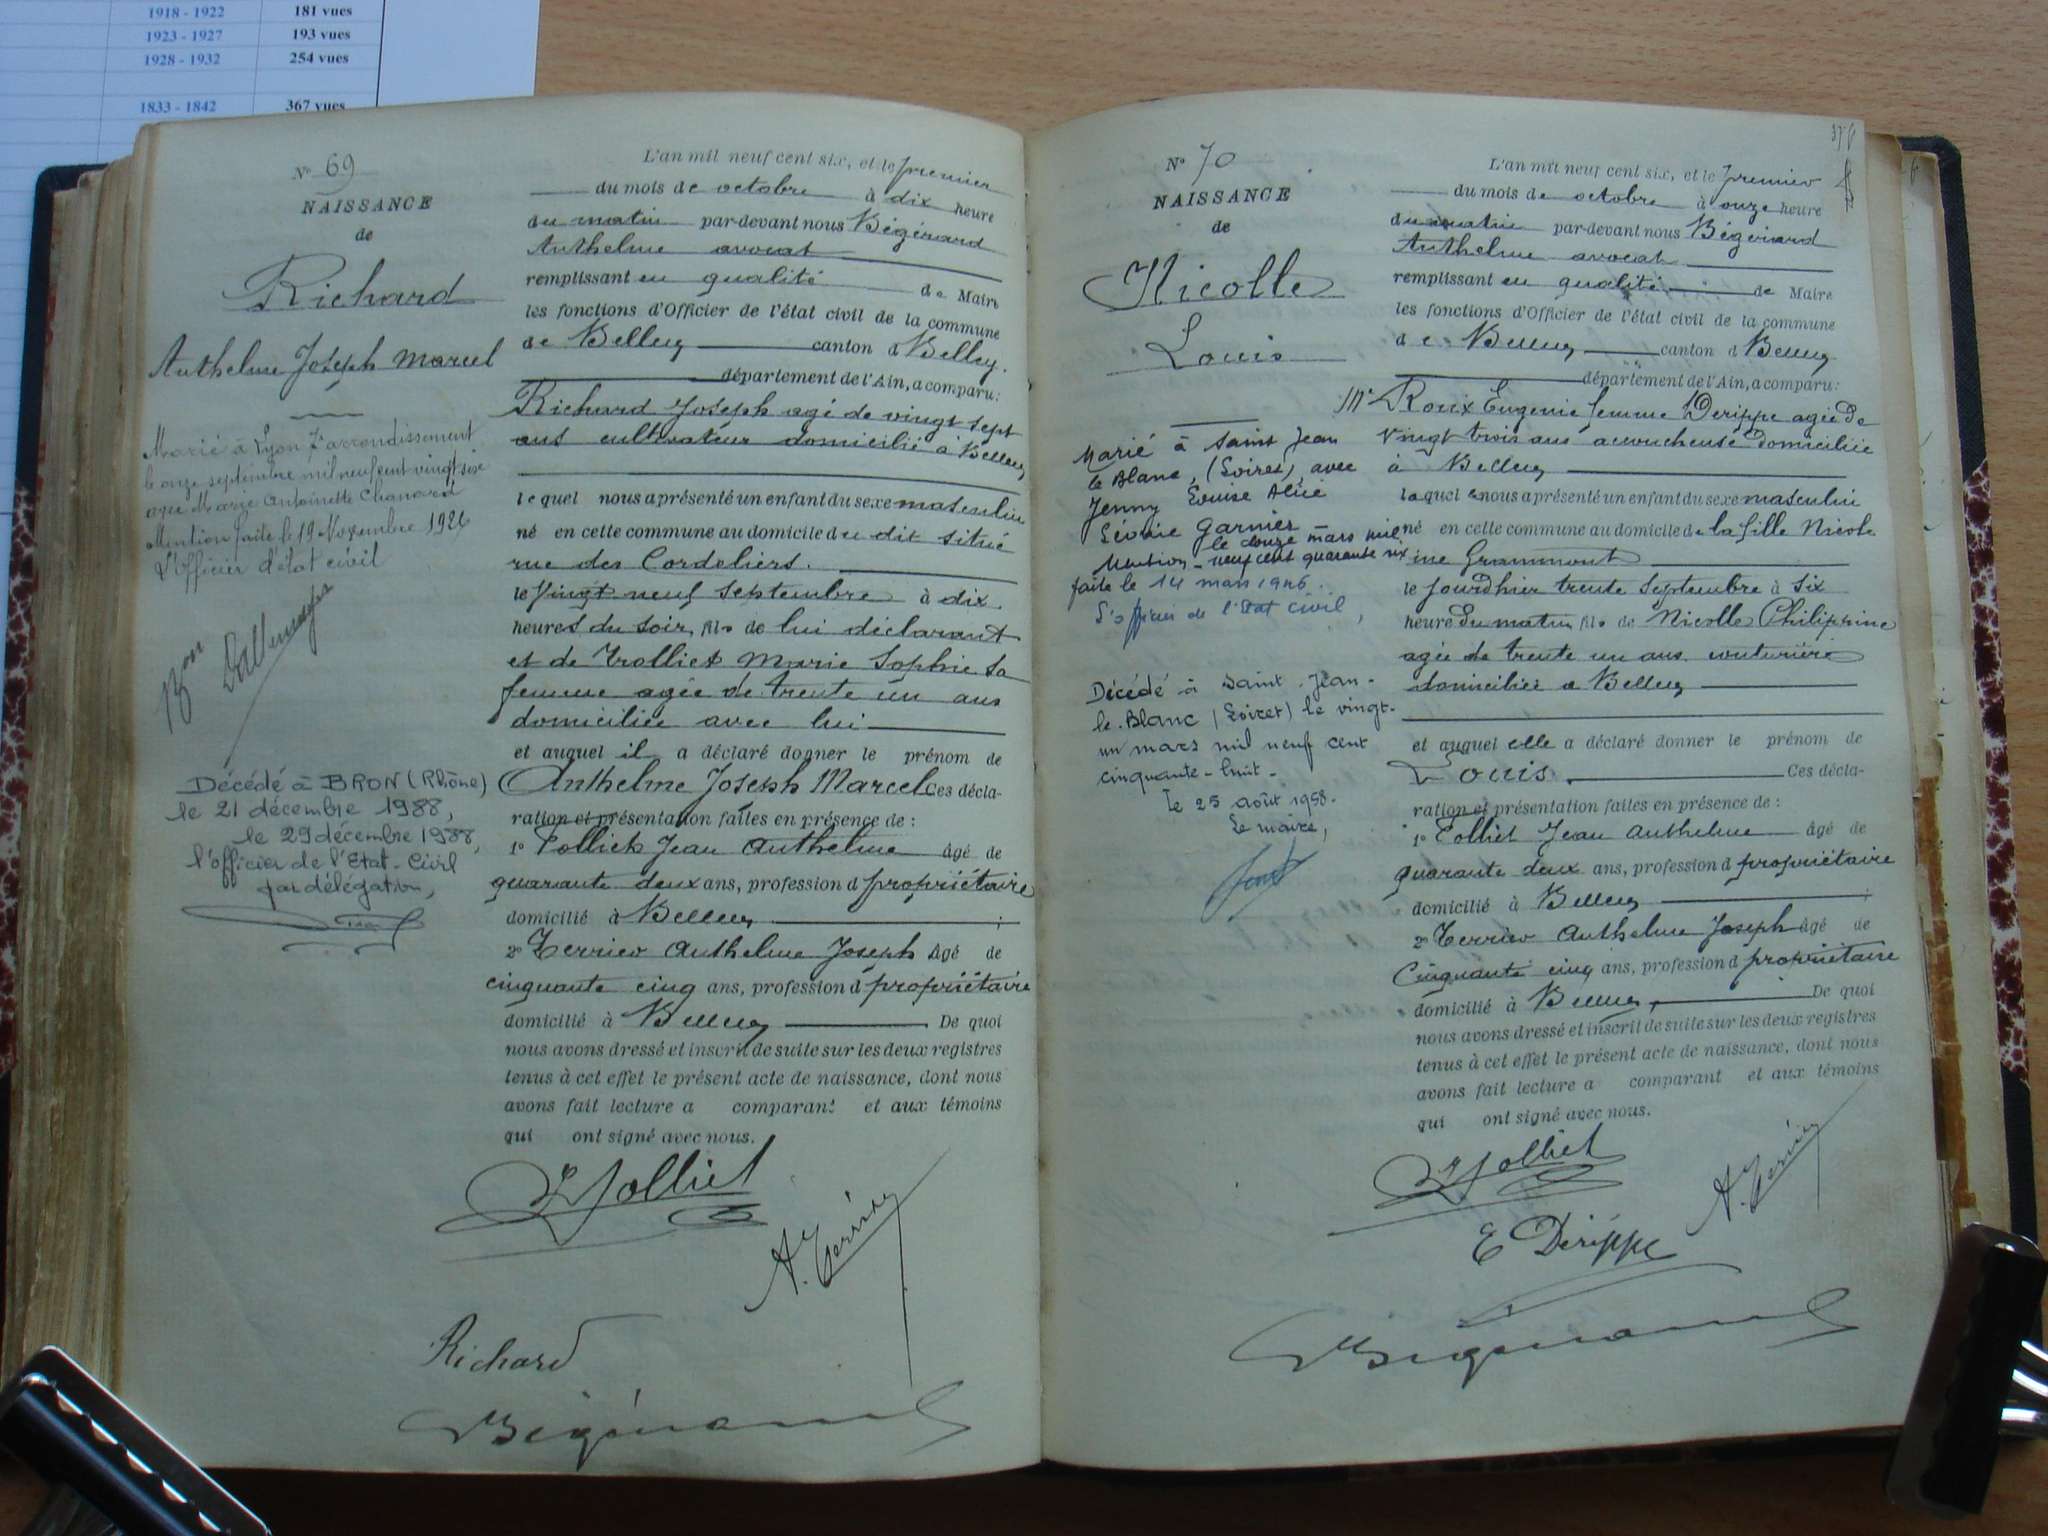 1918 - 1922 181 vues
1923 - 1927 193 vues
1928 - 1932 254 vues
1833 - 1842 367 vues
N° 69
NAISSANCE
de
Richard
Anthelme Joseph Marcel
Marié à Lyon 7e arrondissement
le onze septembre mil neuf cent vingt six
avec Marie Antoinette Chanard
Mention faite le 19 Novembre 1926
L'officier d'état civil
Bon Dallemagne
Décédé à BRON (Rhône)
le 21 décembre 1988,
le 29 décembre 1988,
l'officier de l'Etat-Civil
par délégation,
L'an mil neuf cent six, et le premier
du mois de octobre à dix heure
du matin par-devant nous Bégérard
Anthelme avocat
remplissant en qualité de Maire
les fonctions d'Officier de l'état civil de la commune
de Belley canton d Belley.
département de l'Ain, a comparu:
Richard Joseph agé de vingt sept
ans cultivateur domicilié à Belley
lequel nous a présenté un enfant du sexe masculin
né en cette commune au domicile du dit situé
rue des Cordeliers.
le vingt neuf septembre à dix
heures du soir, fils de lui déclarant
et de Trolliet Marie Sophie sa
femme agée de trente un ans
domiciliée avec lui
et auquel il a déclaré donner le prénom de
Anthelme Joseph Marcel Ces décla-
ration et présentation failes en présence de :
1° Tolliet Jean Anthelme âgé de
quarante deux ans, profession d propriétaire
domicilié à Belley ;
2° Terrier Anthelme Joseph âgé de
cinquante cinq ans, profession d propriétaire
domicilié à Belley De quoi
nous avons dressé et inscrit de suite sur les deux registres
tenus à cet effet le présent acte de naissance, dont nous
avons fait lecture a comparant et aux témoins
qui ont signé avec nous.
Tolliet
A. Terrier
Richard
Bégérard
N° 70
NAISSANCE
de
Nicolle
Louis
Marié à Saint Jean
le Blanc, (Loiret), avec
Jenny Louise Alice
Léonie Garnier
le douze mars mil
Mention neuf cent quarante six
faite le 14 mars 1946.
L'officier de l'Etat civil,
Décédé à Saint-Jean-
le-Blanc (Loiret) le vingt-
un mars mil neuf cent
cinquante-huit-
Le 25 août 1958.
Le maire,
L'an mil neuf cent six, et le premier
du mois de octobre à onze heure
du matin par-devant nous Bégérard
Anthelme avocat
remplissant en qualité de Maire
les fonctions d'Officier de l'état civil de la commune
de Belley canton d Belley
département de l'Ain, a comparu:
Me Roux Eugenie femme Derippe agée de
vingt trois ans accoucheuse domiciliée
à Belley
laquelle nous a présenté un enfant du sexe masculin
né en cette commune au domicile de la fille Nicole
rue Grammont
le jourdhier trente septembre à six
heure du matin, fils de Nicolle Philippine
agée de trente un ans couturière
domiciliée a Belley
et auquel elle a déclaré donner le prénom de
Louis. Ces décla-
ration et présentation failes en présence de :
1° Tolliet Jean Anthelme âgé de
quarante deux ans, profession d propriétaire
domicilié à Belley ;
2° Terrier Anthelme Joseph âgé de
cinquante cinq ans, profession d propriétaire
domicilié à Belley, De quoi
nous avons dressé et inscrit de suite sur les deux registres
tenus à cet effet le présent acte de naissance, dont nous
avons fait lecture a comparant et aux témoins
qui ont signé avec nous.
Tolliet
A. Terrier
E Dérippe
Bégérard